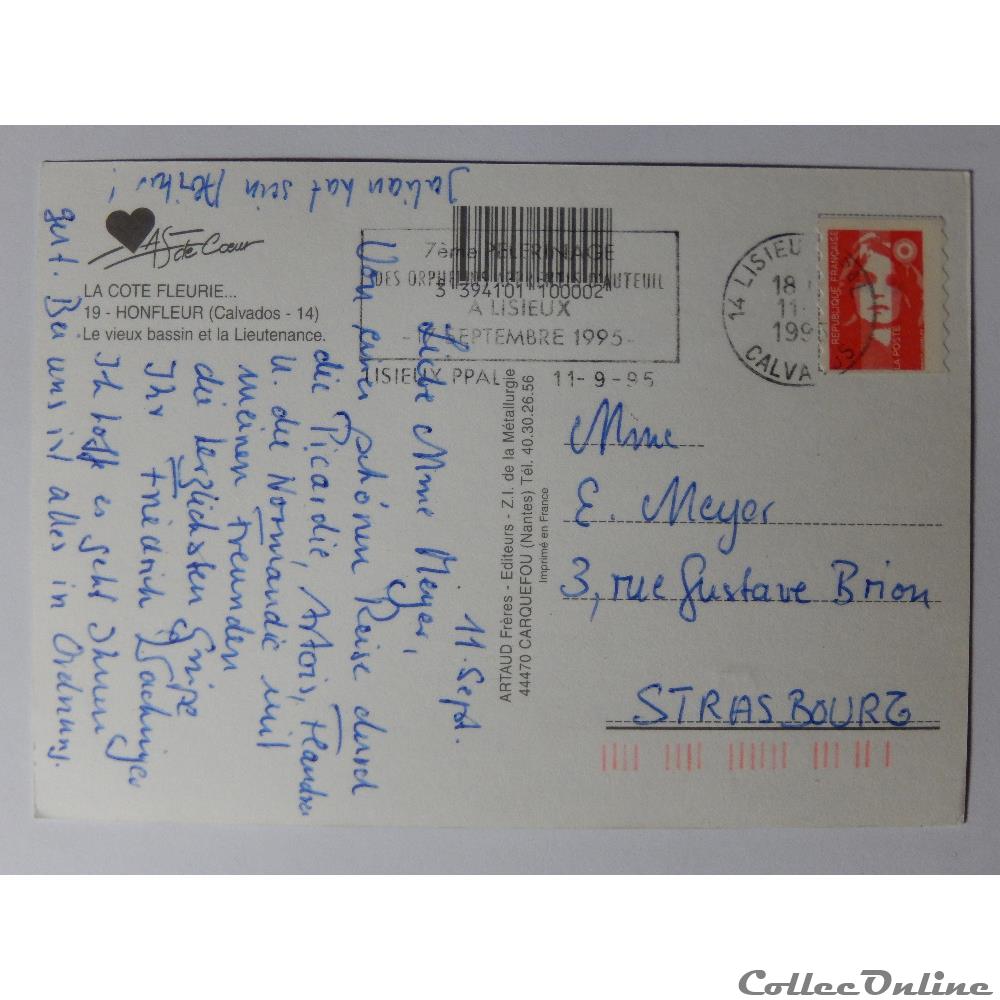 AS de Cœur
LA COTE FLEURIE...
19 - HONFLEUR (Calvados - 14)
Le vieux bassin et la Lieutenance.
7ème PELERINAGE
DES ORPHELINS APPRENTIS D'AUTEUIL
A LISIEUX
SEPTEMBRE 1995
LISIEUX PPAL 11-9-95
3 394101 100002
14 LISIEU
18
11-
199
CALVADOS
REPUBLIQUE FRANÇAISE
LA POSTE
11. Sept.
Liebe Mme Meyer,
Von einer schönen Reise durch
die Picardie, Artois, Flandre
u. die Normandie mit
meinen Freunden
die herzlichsten Grüße
Ihr Friedrich
Ich hoffe es geht Ihnen
gut. Bei uns ist alles in Ordnung.
Julian hat sein Abitur!
ARTAUD Frères - Editeurs - Z.I. de la Métallurgie
44470 CARQUEFOU (Nantes) Tél. 40.30.26.56
Imprimé en France
Mme
E. Meyer
3, rue Gustave Brion
STRASBOURG
CollecOnline